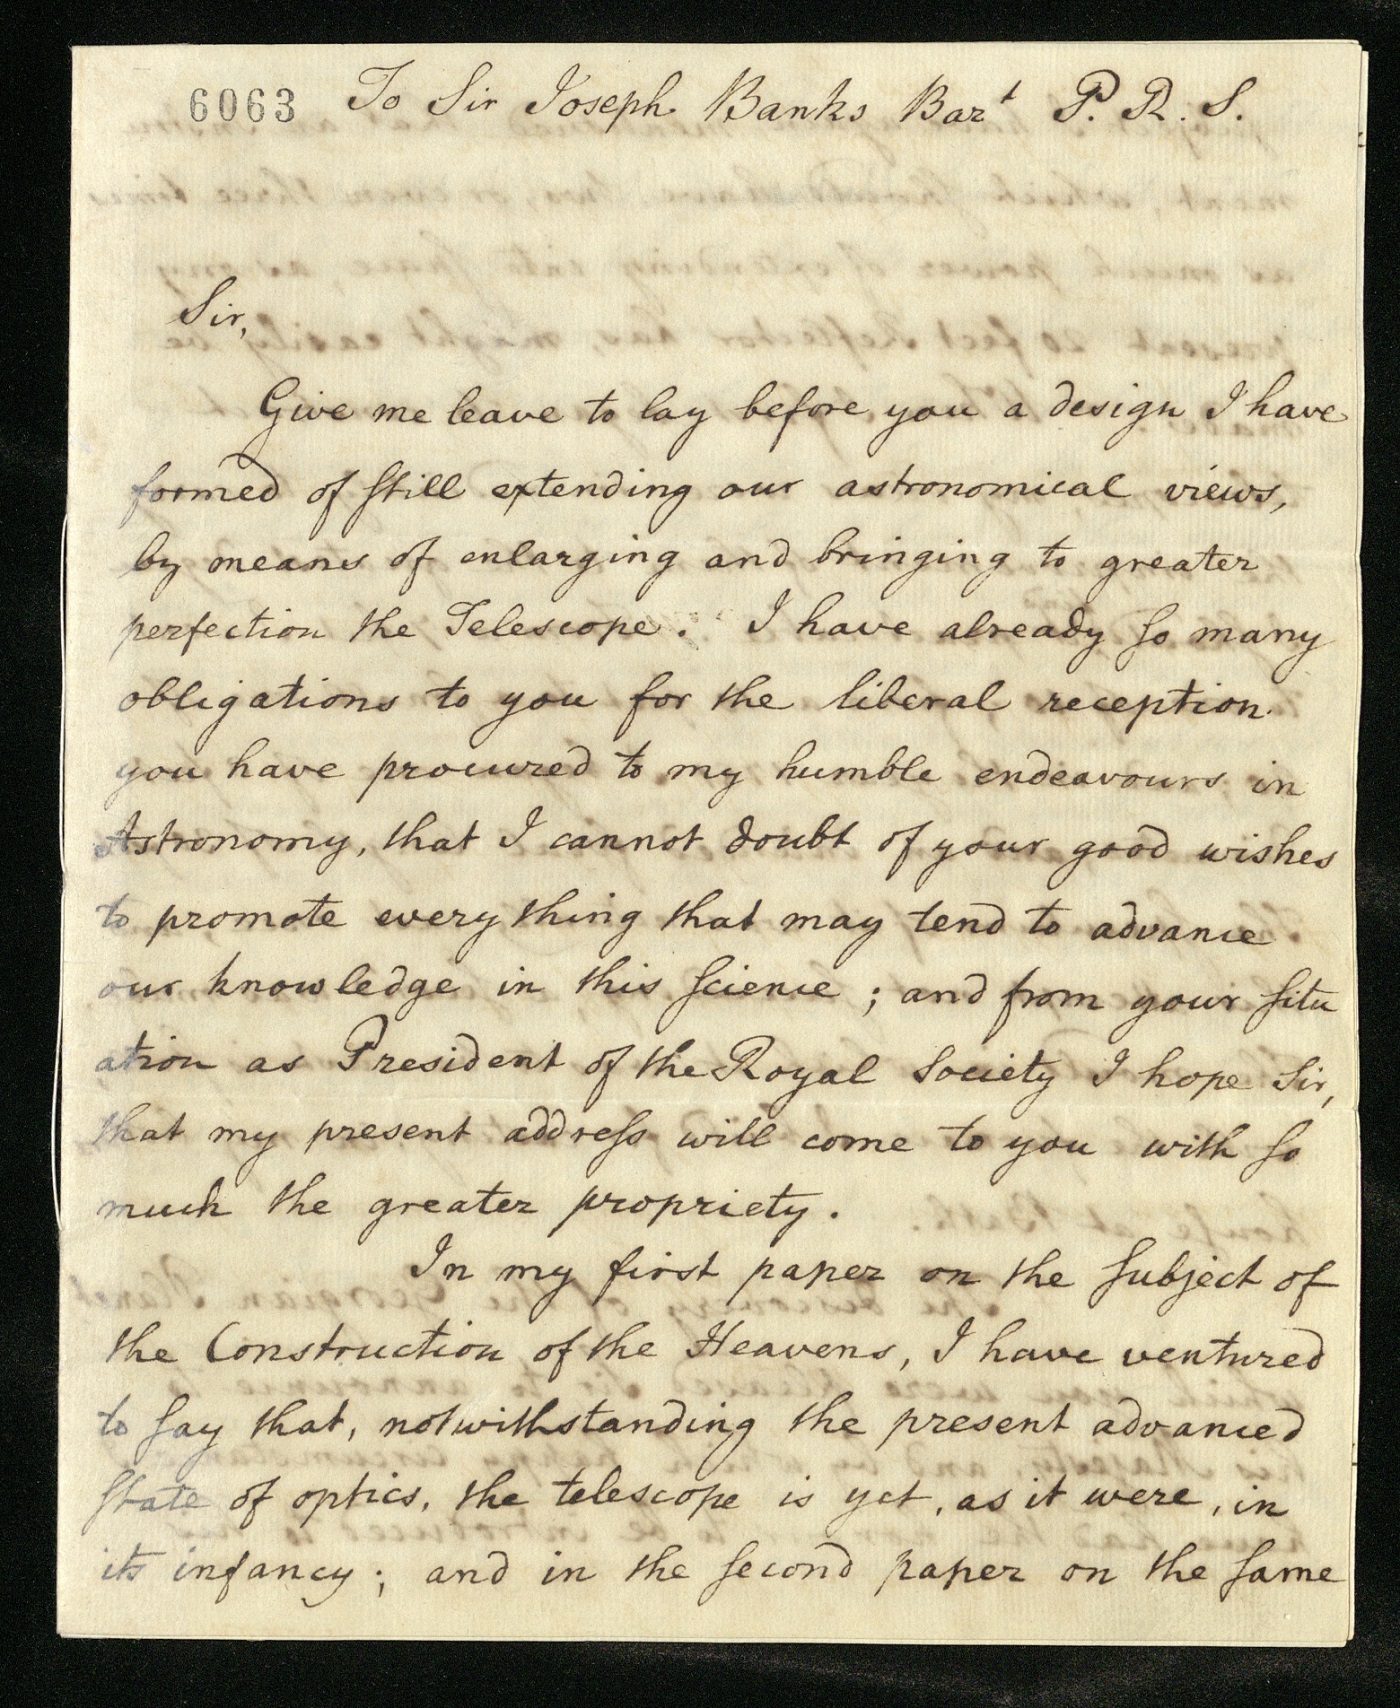 6063 To Sir Joseph Banks Bart P. R. S.
Sir,
Give me leave to lay before you a design I have
formed of still extending our astronomical views,
by means of enlarging and bringing to greater
perfection the Telescope. I have already so many
obligations to you for the liberal reception
you have procured to my humble endeavours in
Astronomy, that I cannot doubt of your good wishes
to promote every thing that may tend to advance
our knowledge in this science; and from your situ
ation as President of the Royal Society I hope Sir,
that my present address will come to you with so
much the greater propriety.
In my first paper on the subject of
the Construction of the Heavens, I have ventured
to say that, notwithstanding the present advanced
state of optics, the telescope is yet, as it were, in
its infancy; and in the second paper on the same